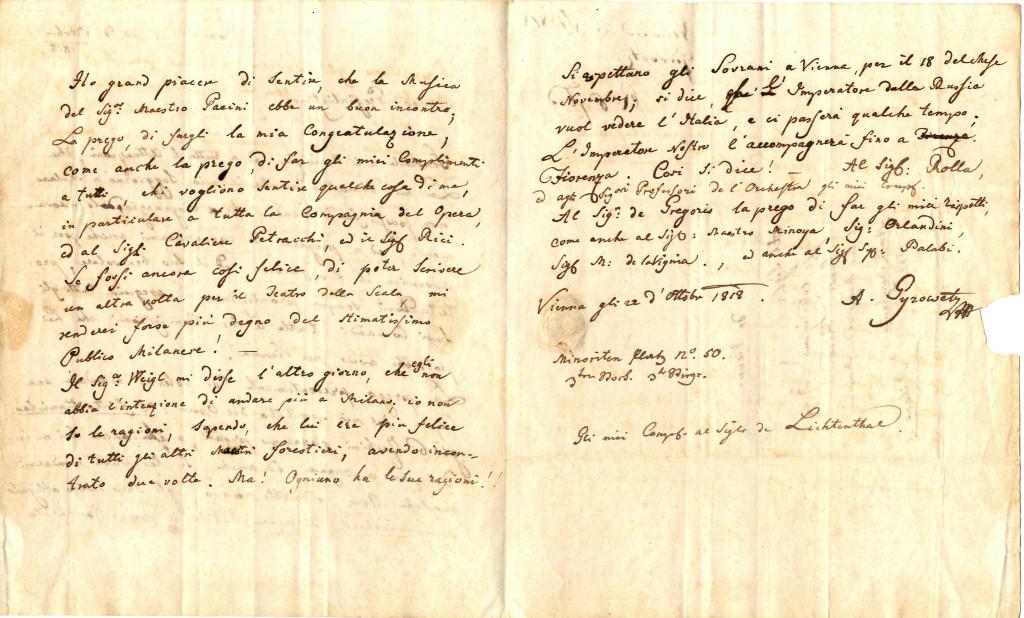 Ho grand piacere di sentire, che la Musica
del Sigr. Maestro Pacini ebbe un buon incontro;
La prego, di fargli la mia Congratulazione,
come anche la prego, di far gli miei Complimenti
a tutti, chi vogliono sentire qualche cosa di me,
in particulare a tutta la Compagnia del Opera,
ed al Sigf: Cavaliere Petracchi, ed il Sigf Rici.
Se fossi ancora cosi felice, di poter scrivere
un altra volta per il Teatro della Scala mi
renderei forse più degno del stimatissimo
Publico Milanese! —
Il Sigr. Weigl mi disse l'altro giorno, che egli non
abbia l'intenzione di andare più a Milano, io non
so le ragioni, sapendo, che lui era più felice
di tutti gli altri Maestri forestieri, avendo incon-
trato due volte. Ma! Ogniuno ha le sue ragioni!!
Si aspettano gli Sovrani a Vienna, per il 18 del Mese
Novembre; si dice, L'Imperatore della Russia
vuol vedere l'Italia, e ci passerà qualche tempo;
L'Imperatore Nostro l'accompagnerà fino a Firenza
Fiorenza. Cosi si dice! — Al Sigf: Rolla,
ed agli Sigori Professori de l'Orchestra gli miei Compf.
Al Sigr: de Gregoris la prego di far gli miei rispetti,
come anche al Sigf: Maestro Minoya, Sig: Orlandini,
Sigf M: de laVignia., ed anche al Sigf Palabi.
Vienna gli 22 d'Ottobr 1818. A. Gyrowetz
Minoriten Platz No. 50.
3ter Stock.
Gli miei Compf al Sigre de Lichtenthal.